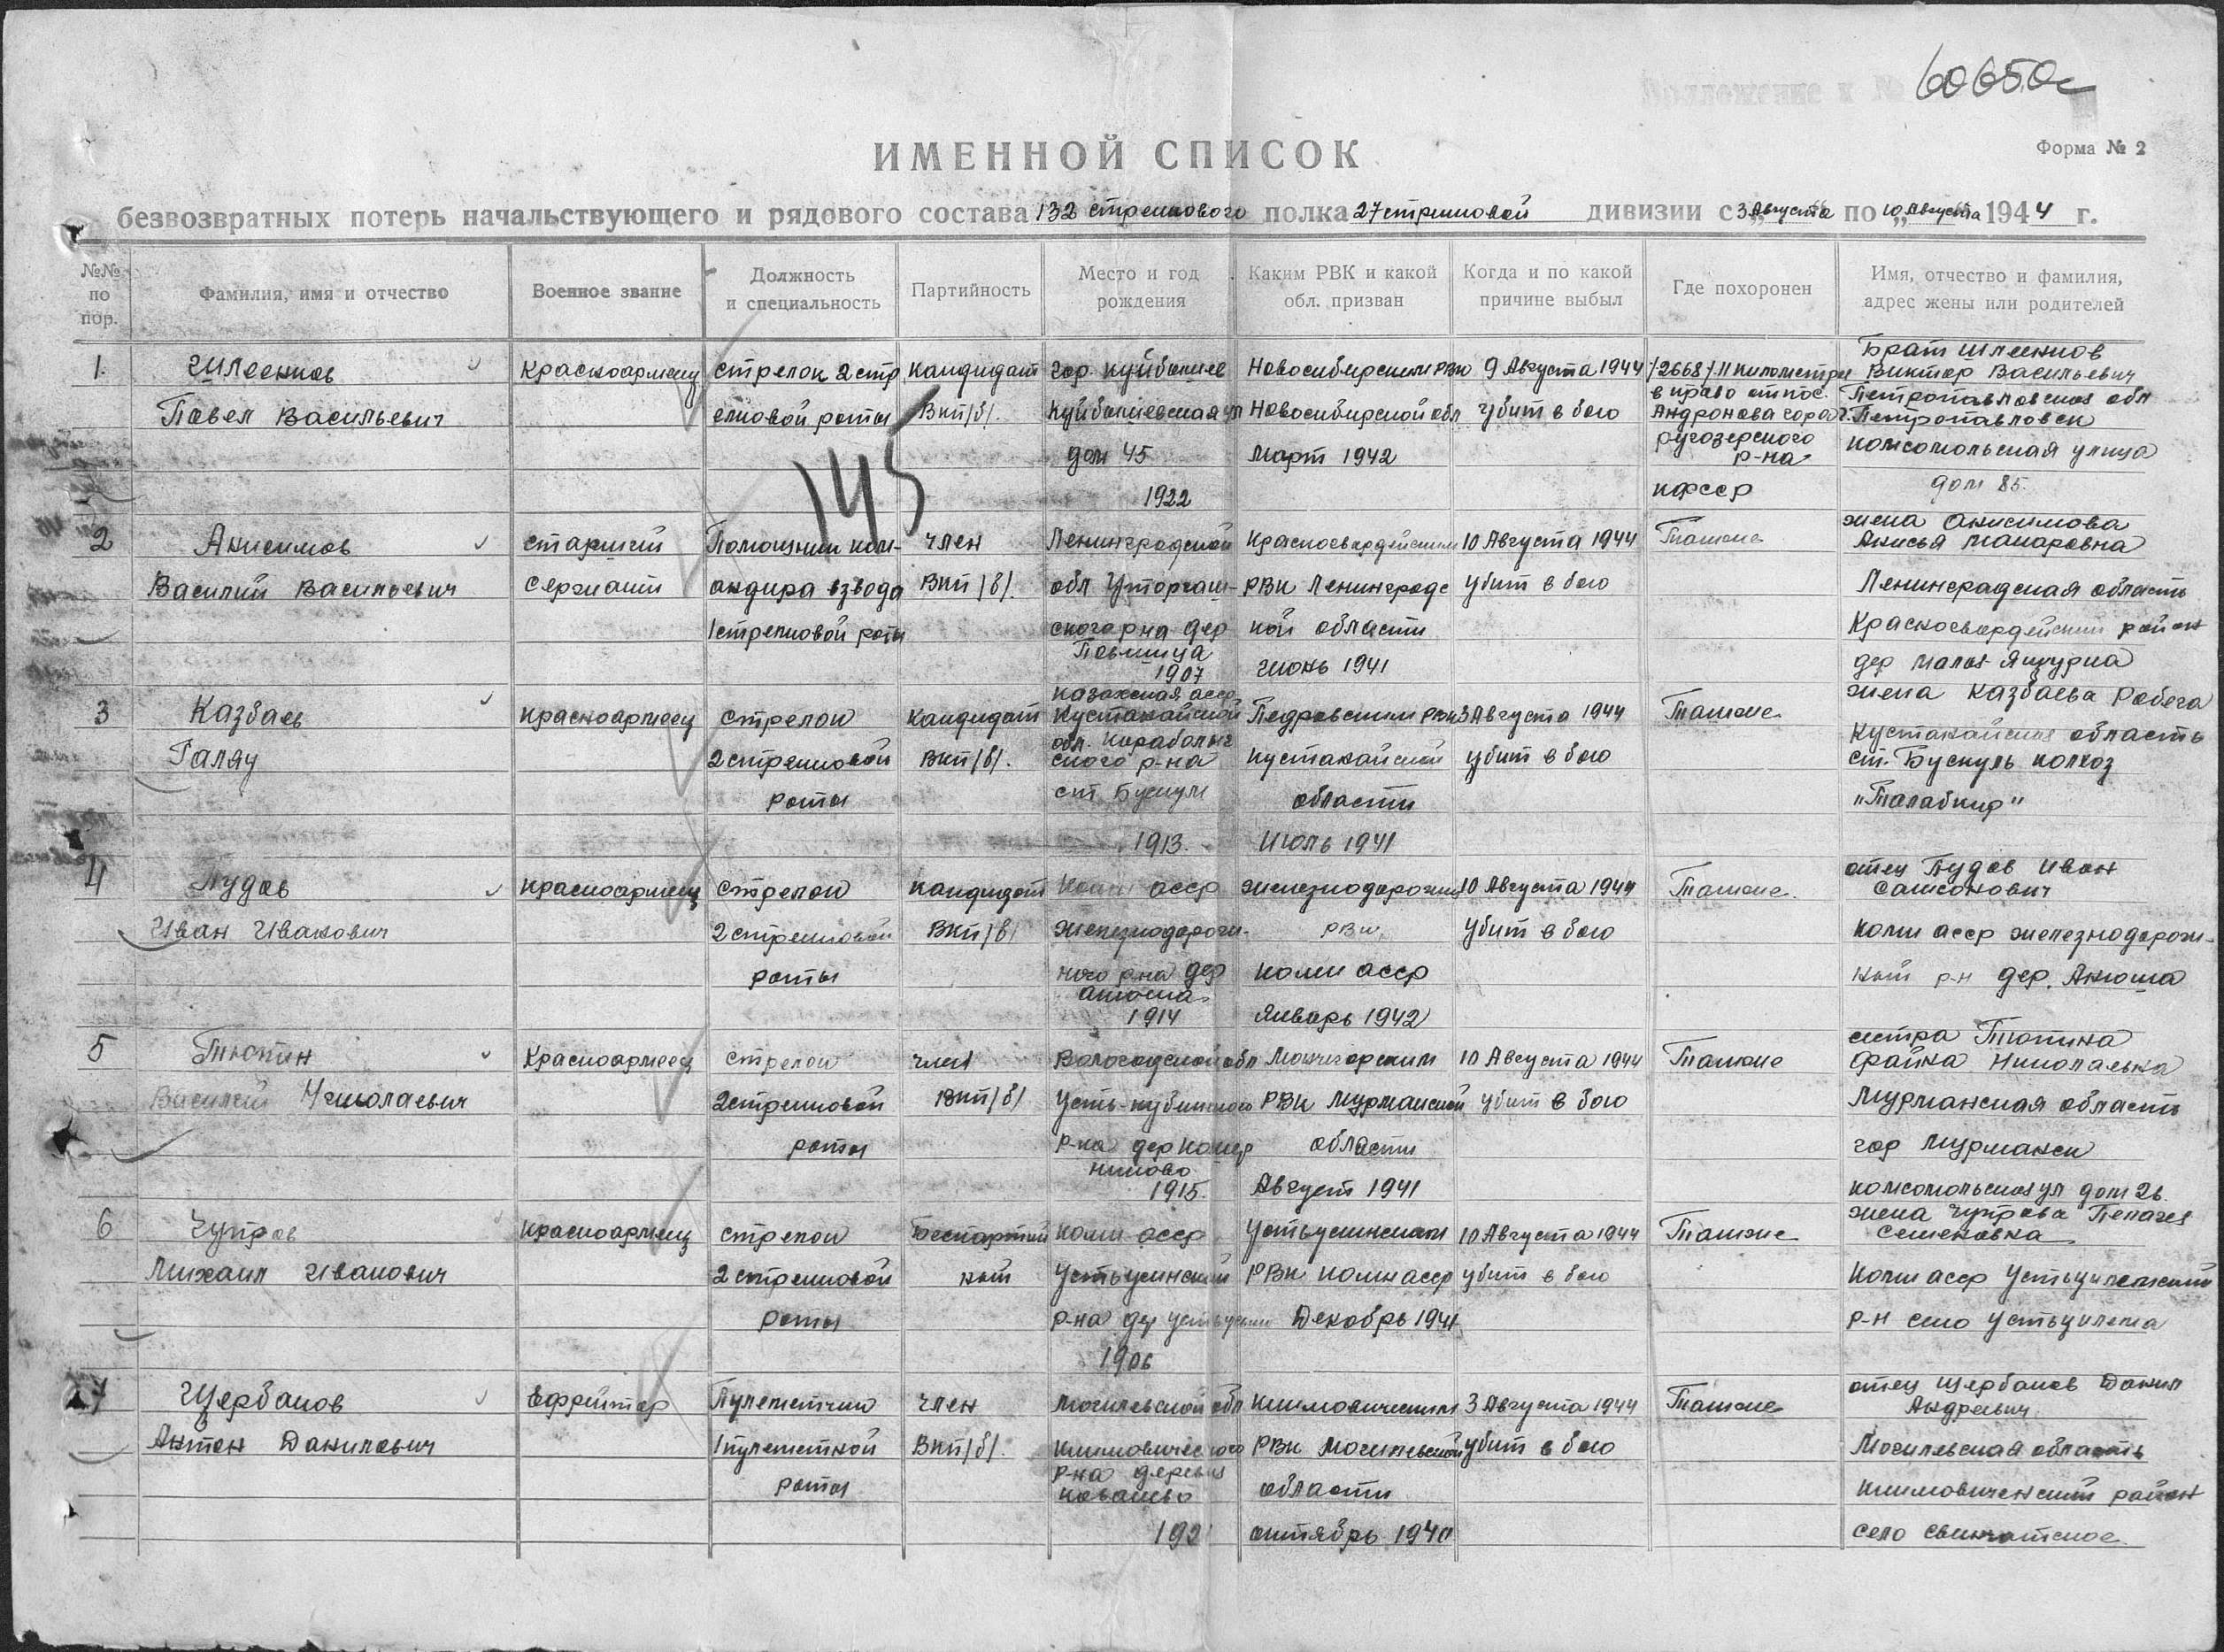 60650с
Приложение к №
ИМЕННОЙ СПИСОК
Форма № 2
безвозвратных потерь начальствующего и рядового состава 132 стрелкового полка 27 стрелковой дивизии с „3 Августа по „10 Августа 1944 г.
№№ по пор.
Фамилия, имя и отчество
Военное звание
Должность и специальность
Партийность
Место и год рождения
Каким РВК и какой обл. призван
Когда и по какой причине выбыл
Где похоронен
Имя, отчество и фамилия, адрес жены или родителей
145
1. Шлеенков Красноармеец стрелок 2 стр кандидат гор. Куйбышев Новосибирским РВК 9 Августа 1944 /2668/ 11 километри Брат Шлеенков Виктор Васильевич
Павел Васильевич елковой роты ВКП/б/. Куйбышевская ул Новосибирской обл убит в бою в право относ. Андронова гора Петропавловская обл г. Петропавловск
дом 45 Март 1942 ругозерского р-на комсомольская улица
1922 КФССР дом 85.
2 Анисимов старший Помощник ком- член Ленинградской Красногвардейским 10 Августа 1944 Там же жена Анисимова Анисья Макаровна
Василий Васильевич сержант андира взвода ВКП/б/. обл Уторгош- РВК Ленинградс убит в бою Ленинградская область
1 стрелковой роты ского р-на дер кой области Красногвардейский район
1907 июнь 1941 дер Малая
3 Казбаев красноармеец стрелок кандидат Казахская асср Кустанайской РВК 3 Августа 1944 Там же жена Казбаева
Галяу 2 стрелковой ВКП/б/. обл. ского р-на Кустанайской убит в бою Кустанайская область ст. Бускуль колхоз
роты ст Бускуль области
1913. Июль 1941
4 Пудов красноармеец стрелок кандидат Коми асср железнодорожным 10 Августа 1944 Там же. отец Пудов Иван Самсонович
Иван Иванович 2 стрелковой ВКП/б/ Железнодорож- РВК убит в бою Коми асср железнодорож-
роты ного р-на дер коми асср ный р-н дер.
1914 Январь 1942
5 Тюпин Красноармеец стрелок член Вологодской обл Мончегорским 10 Августа 1944 Там же сестра Тюпина Николаевна
Василий Николаевич 2 стрелковой ВКП/б/ Усть-кубинского РВК Мурманской убит в бою Мурманская область
роты р-на дер области гор Мурманск
1915. Август 1941 комсомольская ул дом 26.
6 Чупров красноармеец стрелок Беспартий Коми асср Устьусинским 10 Августа 1944 Там же жена Чупрова Пелагея Семеновна
Михаил Иванович 2 стрелковой ный Устьусинский РВК Коми асср убит в бою Коми асср Устьцилемский
роты р-на дер Декабрь 1941 р-н село Устьцилема
1906
7 Щербаков Ефрейтор Пулеметчик член Могилевской обл Климовическим 3 Августа 1944 Там же отец Щербаков Данил Андреевич.
Антон Данилович 1 пулеметной ВКП/б/. Климовического РВК Могилевской убит в бою Могилевская область
роты р-на деревня области Климовиченский район
192 октябрь 1940 село